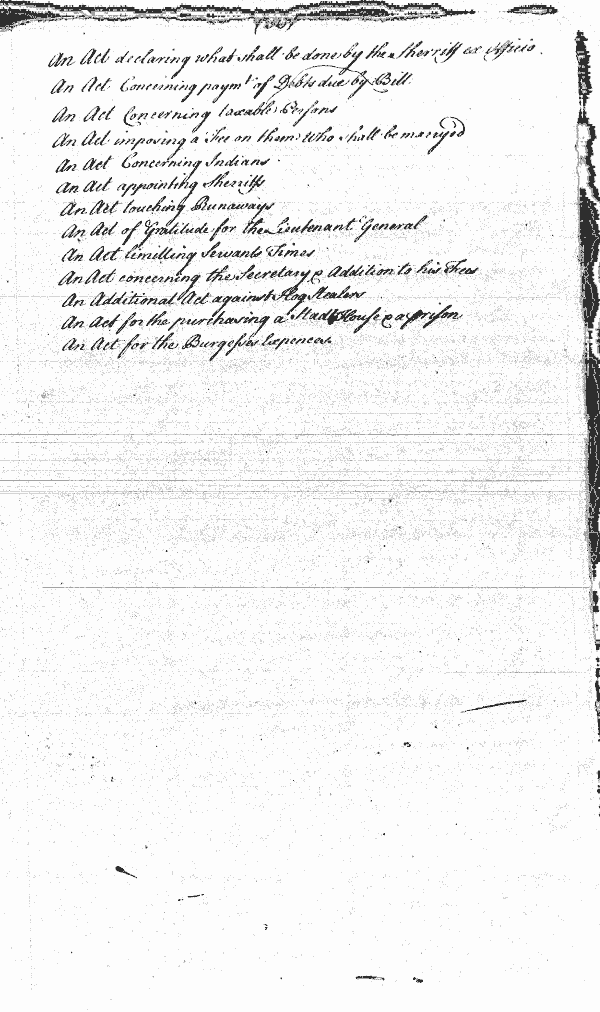 An Act declaring what shall be done by the Sherriff ex Officio.
An Act Concerning paymt of Debts due by Bill
An Act Concerning taxable Persons
An Act imposing a Fee on them who shall be marryed
An Act Concerning Indians
An Act appointing Sherriffs
An Act touching Runaways
An Act of Gratitude for the Lieutenant General
An Act limitting Servants Times
An Act concerning the Secretary & Addition to his Fees
An Additional Act against Hog Stealers
An Act for the purchasing a Stadt House & a prison
An Act for the Burgesses Expences